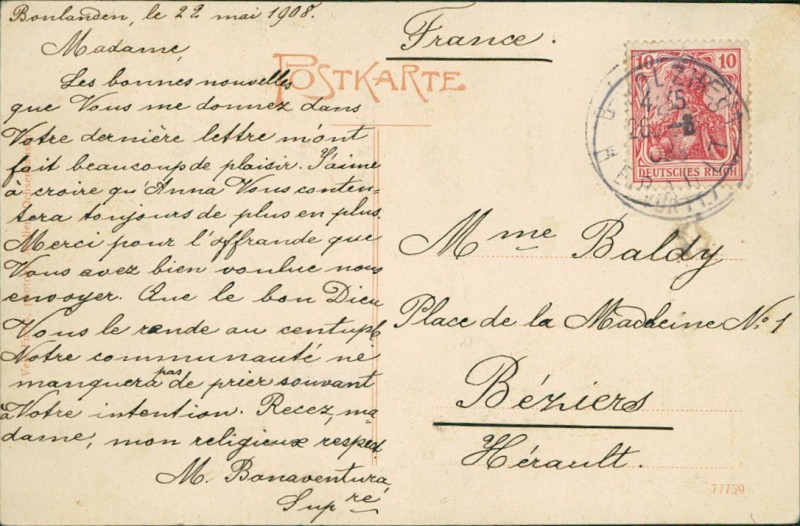 Bonlanden, le 22 mai 1908.
Madame,
Les bonnes nouvelles
que Vous me donnez dans
Votre dernière lettre m'ont
fait beaucoup de plaisir. J'aime
à croire qu'Anna Vous conten-
tera toujours de plus en plus.
Merci pour l'offrande que
Vous avez bien voulue nous
envoyer. Que le bon Dieu
Vous le rende au centupl
Notre communauté ne
manquera pas de prier souvant
à Votre intention. Recez, ma
dame, mon religieux respect
M. Bonaventura,
Supré
POSTKARTE
France.
10 10
DEUTSCHES REICH
Mme Baldy
Place de la Madleine No 1
Béziers
Hérault.
77769